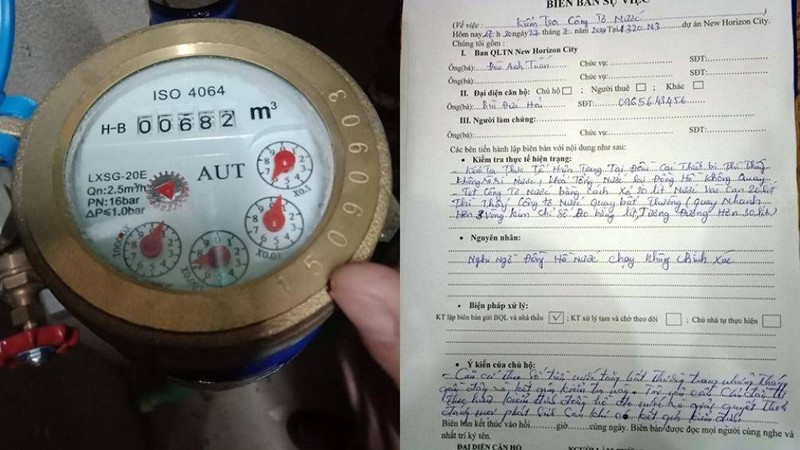 ISO 4064
H-B 00682 m³
LXSG-20E
Qn: 2.5m³/h
PN: 16bar
ΔP≤1.0bar
AUT
X0.1
X0.01
15060903
BIÊN BẢN SỰ VIỆC
(Về việc: Kiểm Tra Công Tơ Nước
dự án New Horizon City.
Chúng tôi gồm:
I. Ban QLTN New Horizon City
Ông(bà): Đào Anh Tuấn Chức vụ: SĐT:
Ông(bà): Chức vụ: SĐT:
II. Đại diện căn hộ: Chủ hộ Người thuê Khác
Ông(bà): Bùi Đức Hải SĐT: 0965643456
III. Người làm chứng:
Ông(bà): Chức vụ: SĐT:
Các bên tiến hành lập biên bản với nội dung như sau:
• Kiểm tra thực tế hiện trạng:
- Kiểm Tra Thực Tế Hiện Trạng Tại Đồng
nước, khóa Tổng Nước lại Đồng Hồ Không Quay
- Test Công Tơ Nước bằng cách xả 20 lít Nước Vào Can 20 lít
Thì Thấy Công tơ Nước quay bất Thường (quay Nhanh
Hơn 3 Vòng kim chỉ số Đo bằng lít, Tương Đương Hơn 30 lít)
• Nguyên nhân:
Nghi Ngờ Đồng Hồ Nước chạy Không Chính Xác
• Biện pháp xử lý:
KT lập biên bản gửi BQL và nhà thầu ; KT xử lý tạm và chờ theo dõi ; Chủ nhà tự thực hiện
• Ý kiến của chủ hộ:
- Căn cứ theo số tiền nước tăng bất thường trong những tháng
gần đây và kết quả kiểm tra
thực hiện kiểm định đồng hồ đo nước và giải quyết
phát sinh sau khi có kết quả kiểm định
Biên bản kết thúc vào hồi......giờ......cùng ngày. Biên bản được đọc mọi người cùng nghe và
nhất trí ký tên.
ĐẠI DIỆN CĂN HỘ